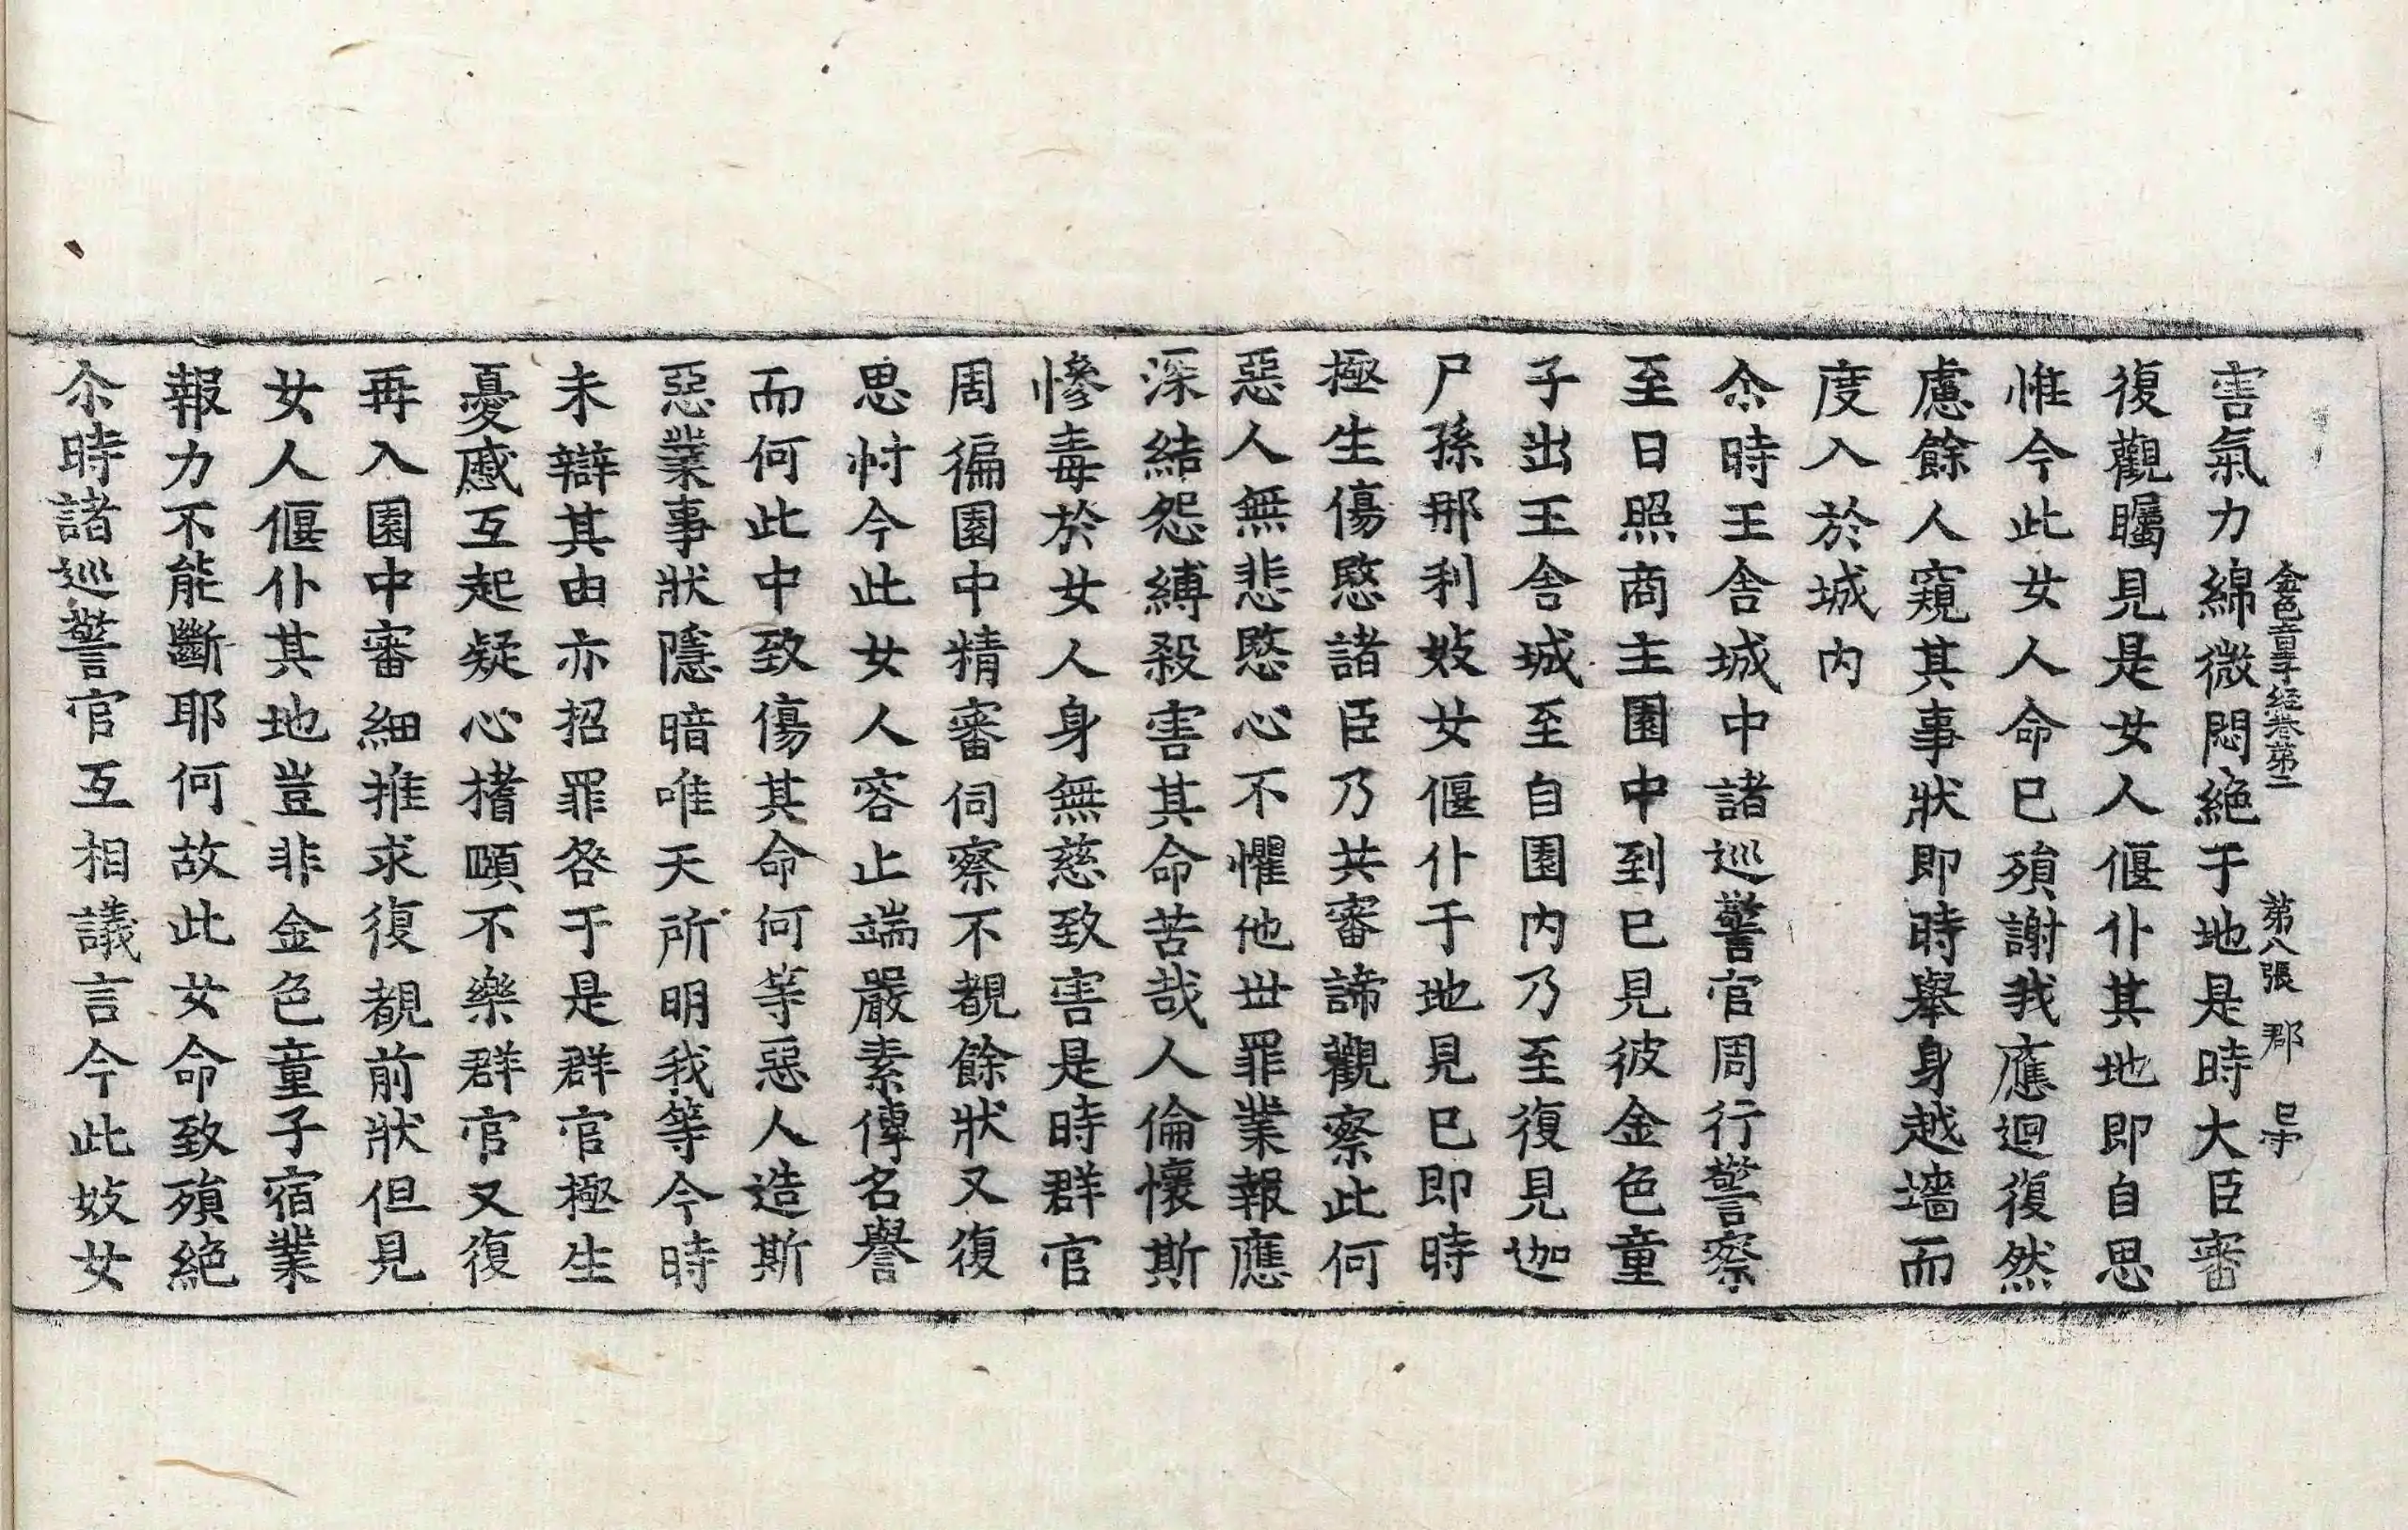 金色童子経巻第二　第八張　郡
害氣力綿微悶絶于地是時大臣審
復觀矚見是女人偃仆其地即自思
惟今此女人命已殞謝我應迴復然
慮餘人窺其事狀即時舉身越墻而
度入於城内
尒時王舍城中諸巡警官周行警察
至日照商主園中到已見彼金色童
子出王舍城至自園内乃至復見迦
尸孫那利妓女偃仆于地見已即時
極生傷愍諸臣乃共審諦觀察此何
惡人無悲愍心不懼他世罪業報應
深結怨縛殺害其命苦哉人倫懷斯
慘毒於女人身無慈致害是時群官
周徧園中精審伺察不覩餘狀又復
思忖今此女人容止端嚴素傳名譽
而何此中致傷其命何等惡人造斯
惡業事狀隱暗唯天所明我等今時
未辯其由亦招罪咎于是群官極生
憂慼互起疑心㨷頤不樂群官又復
再入園中審細推求復覩前狀但見
女人偃仆其地豈非金色童子宿業
報力不能斷耶何故此女命致殞絶
尒時諸巡警官互相議言今此妓女